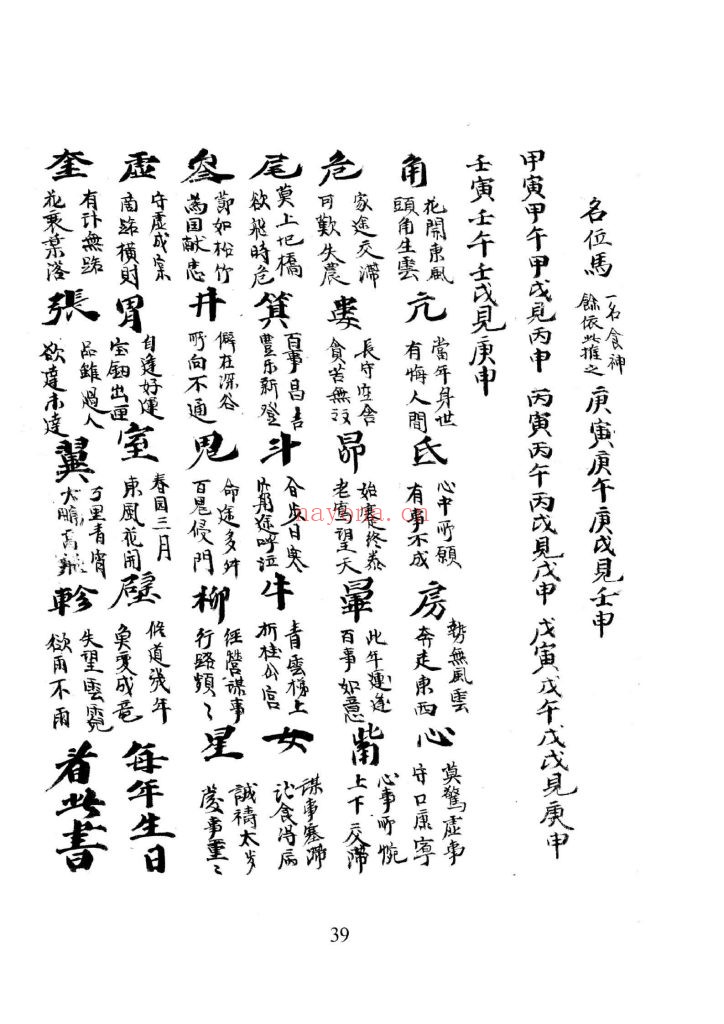 名位馬 一名食神 餘依此推之 庚寅庚午庚戌見壬申
甲寅甲午甲戌見丙申 丙寅丙午丙戌見戊申 戊寅戊午戊戌見庚申
壬寅壬午壬戌見庚申
角 花開東風 頭角生雲
亢 當年身世 有悔人間
氐 心中所願 有事不成
房 勢無風雲 奔走東西
心 莫驚虛事 守口康寧
危 家途交滯 可歎失農
婁 長守空舍 貧苦無
昴 始寒終泰 老 望天
畢 此年運逢 百事如意
觜 心事所惋 上下交滯
尾 莫上圯橋 欲飛時危
箕 百事昌吉 豊乐新登
斗 日寒 途呼泣
牛 青雲梯上 折桂公宮
女 謀事塞滯 食得病
參 節如松竹 為国献忠
井 僻在深谷 所向不通
鬼 命途多舛 百鬼侵門
柳 经營謀事 行路頻〻
星 誠禱太岁 慶事重〻
虛 守虛成宗 南路横財
胃 自逢好運 宝釰出匣
室 春园三月 東風花開
壁 修道幾年 魚变成竜
每年生日
奎 有计無路 花衰葉落
張 品雖過人 欲達未達
翼 万里青霄 大鵬高
軫 失望雲霓 欲雨不雨
看此書
nayona.cn
39